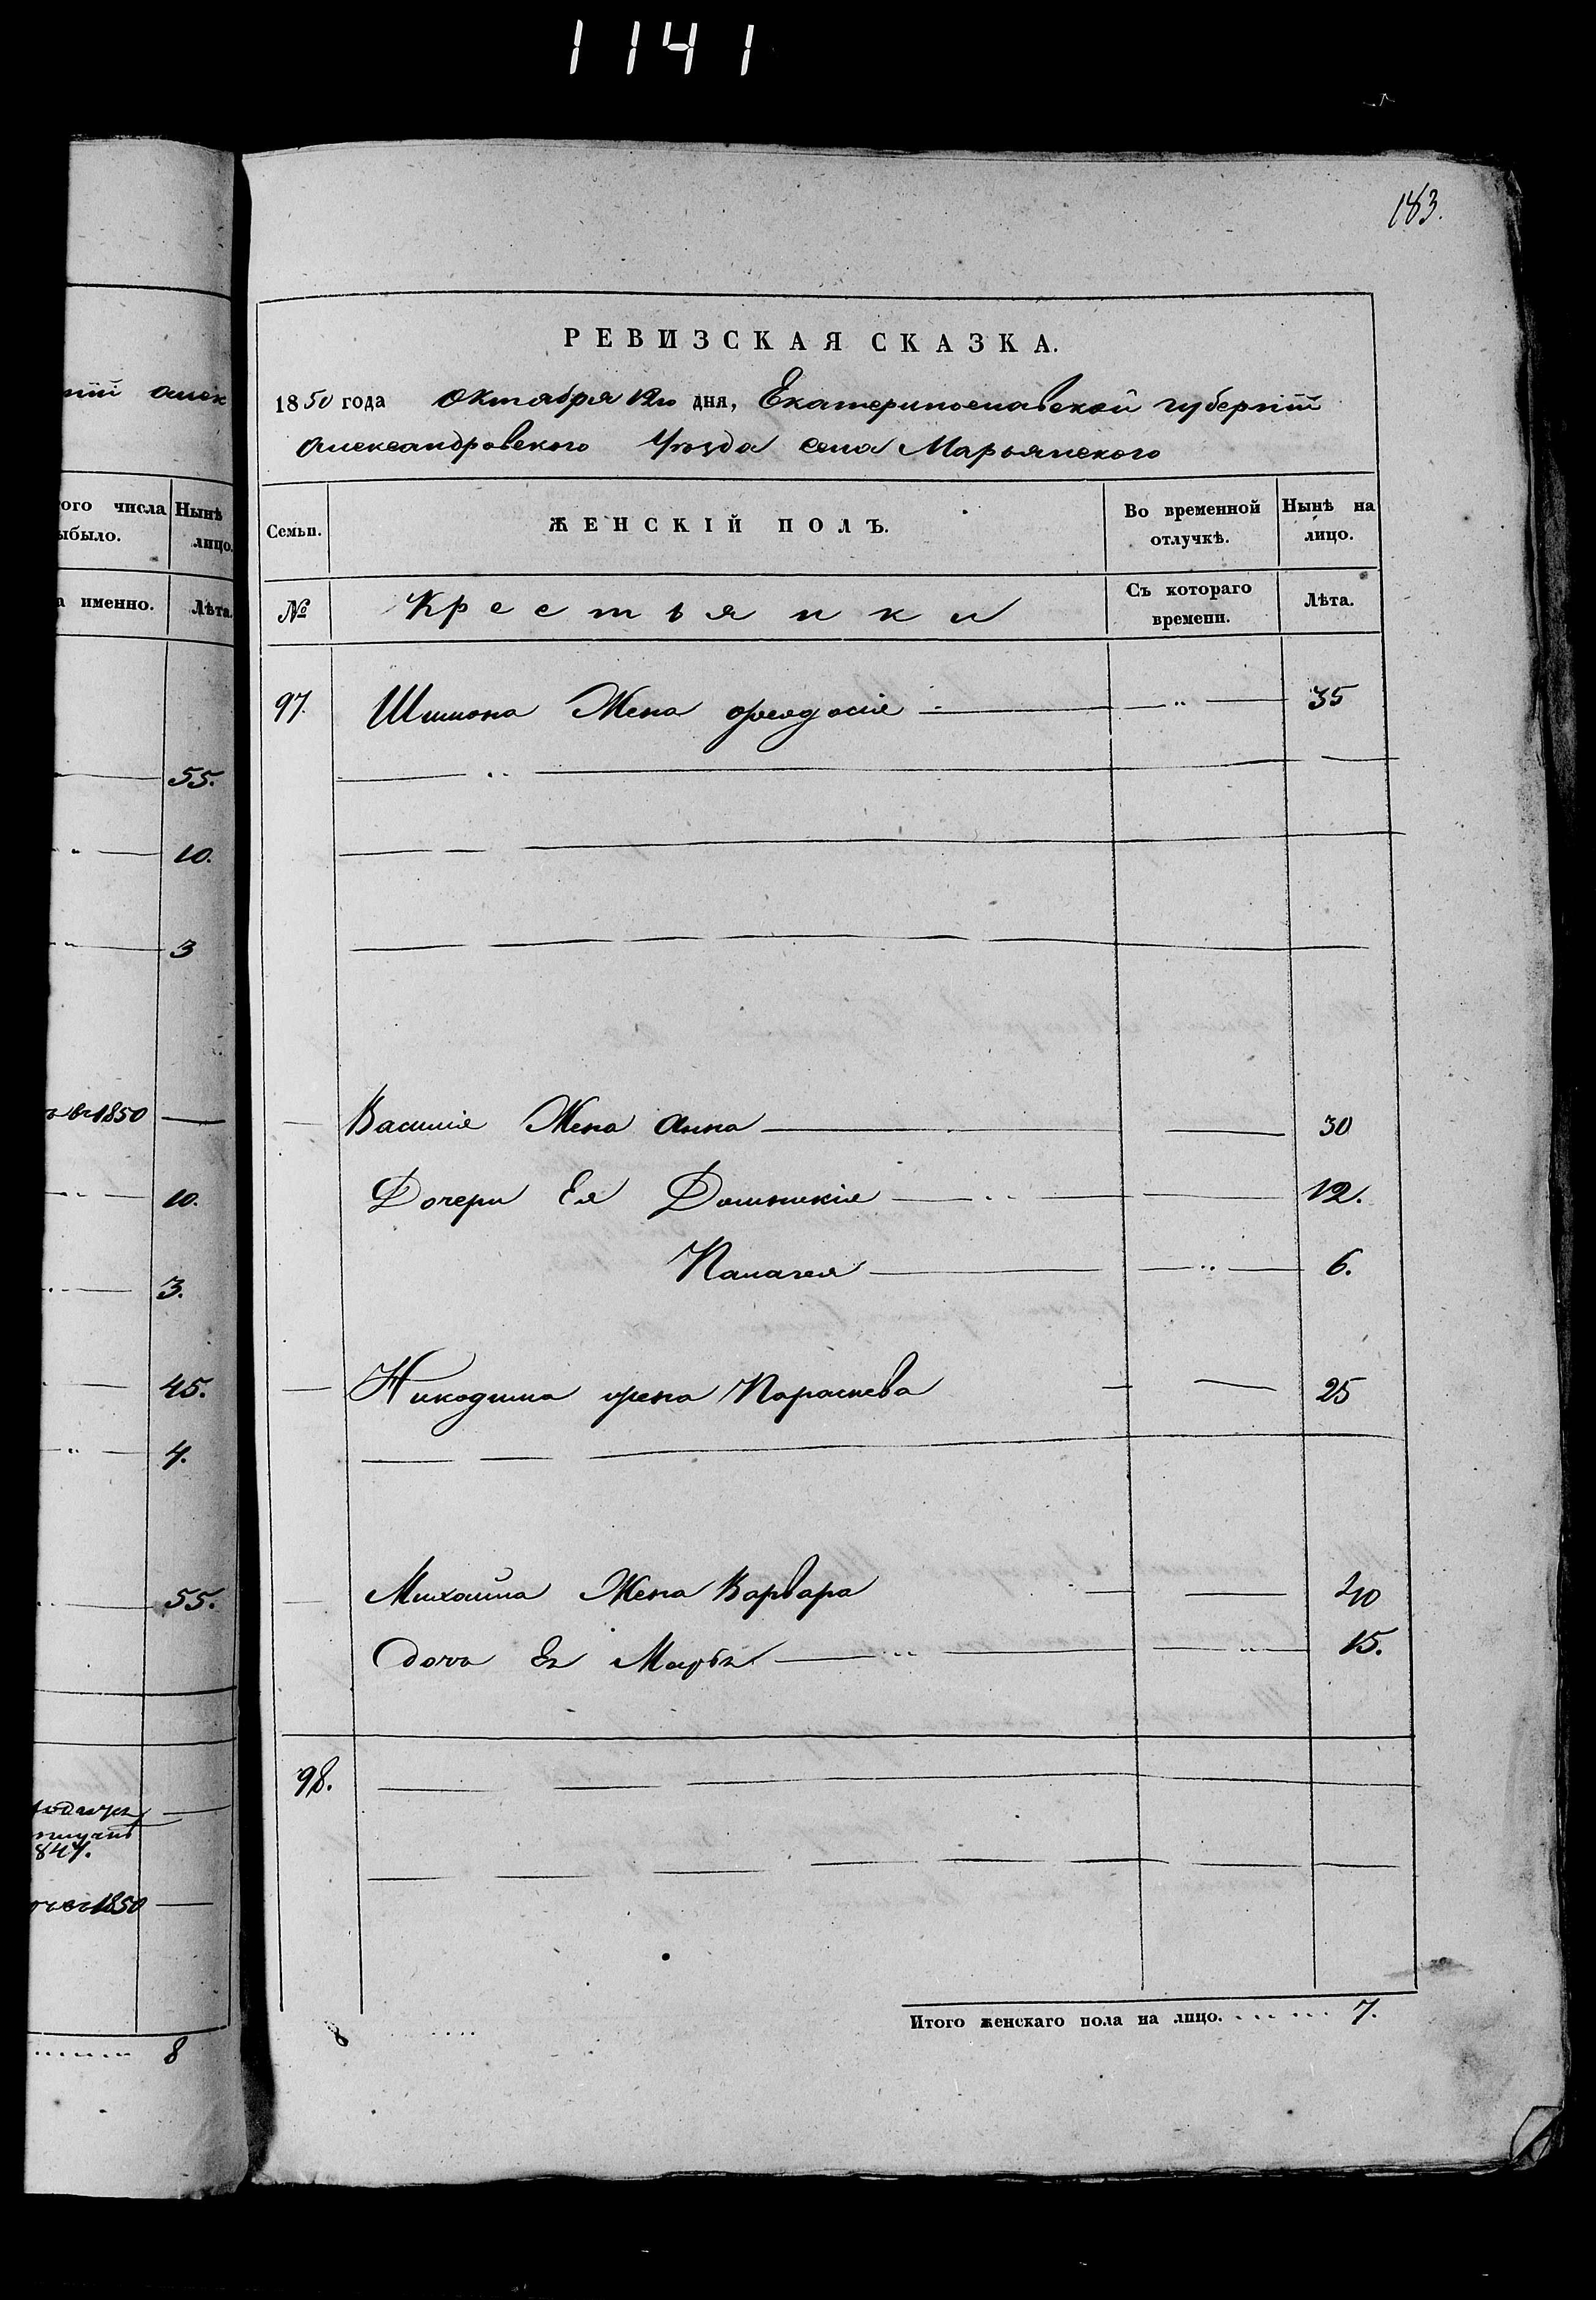 1141
183.
РЕВИЗСКАЯ СКАЗКА.
1850 года Октября 12го дня, Екатеринославской губерніи
Александровского Уезда села Марьянского
Семьи.
ЖЕНСКІЙ ПОЛЪ.
Во временной отлучкѣ.
Нынѣ на лицо.
№
Крестьянки
Съ котораго времени.
Лѣта.
97. Шимона Жена Феядосіе 35
Василіе Жена Анна 30
Дочери Ея Домникіе 12.
Палагея 6.
Никодима жена Параскева 25
Михайла Жена Варвара 40
дочь Ея Марья 15.
98.
Итого женскаго пола на лицо. 7.
8
ніи Алек
ого числа
ыбыло.
Нынѣ
лицо.
а именно.
Лѣта.
55.
10.
3
1850
10.
3.
45.
4.
55.
847.
1850
8